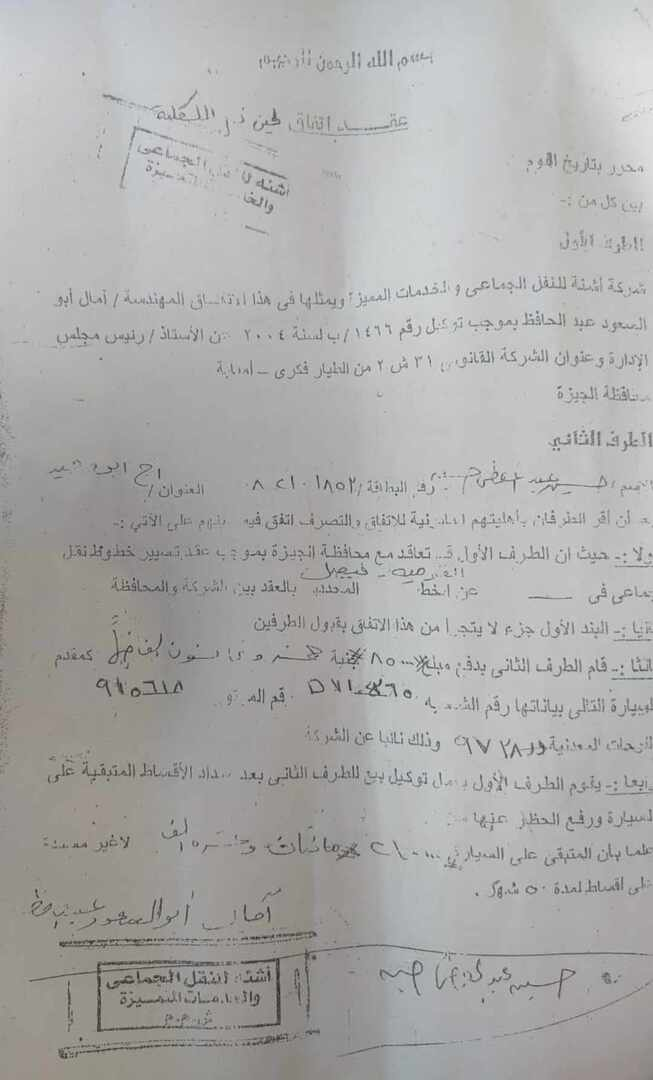 بسم الله الرحمن الرحيم
عقد اتفاق لحين نقل الملكية
أشنه للنقل الجماعى
والخدمات المميزة
محرر بتاريخ اليوم
بين كل من :-
الطرف الأول
شركة أشنة للنقل الجماعى والخدمات المميزة ويمثلها فى هذا الاتفاق المهندسة / أمال أبو
السعود عبد الحافظ بموجب توكيل رقم ١٤٦٦ / ب لسنة ٢٠٠٤ عن الأستاذ / رئيس مجلس
الإدارة وعنوان الشركة القانونى ٣١ ش ٢ من الطيار فكرى - امبابة
محافظة الجيزة
الطرف الثاني
رقم البطاقة / العنوان /
بعد أن أقر الطرفان بأهليتهم القانونية للاتفاق والتصرف اتفق فيما بينهم على الآتي :-
أولا :- حيث ان الطرف الأول قد تعاقد مع محافظة الجيزة بموجب عقد تسيير خطوط نقل
جماعى فى عن الخط المحدد بالعقد بين الشركة والمحافظة
ثانيا :- البند الأول جزء لا يتجزأ من هذا الاتفاق بقبول الطرفين
ثالثا :- قام الطرف الثانى بدفع مبلغ ٨٥٠٠٠ جنية خمسة وثمانون ألفا كمقدم
للسيارة التالى بياناتها رقم الشاسيه رقم الموتور
اللوحات المعدنية وذلك نائبا عن الشركة
رابعا :- يقوم الطرف الأول بعمل توكيل بيع للطرف الثانى بعد سداد الأقساط المتبقية على
السيارة ورفع الحظر عنها
علما بان المتبقى على السيارة ٢١٠٠٠٠ مائتان وعشره الف لاغير مقسمة
على اقساط لمدة ٥٠ شهر .
أمال أبو السعود عبد الحافظ
أشنة للنقل الجماعى
والخدمات المتميزة
ش.م.م